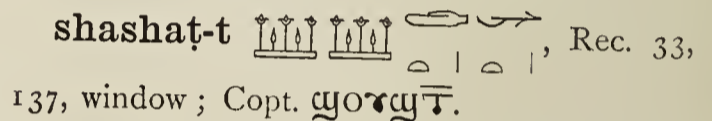 shashaṭ-t 𓆷𓆷𓂧𓏏𓏤, Rec. 33,
137, window; Copt. ϣⲟⲩϣⲧ̅.